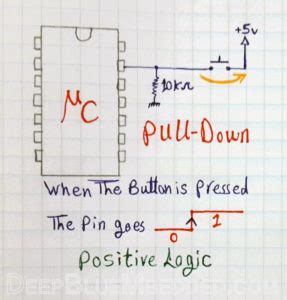 +5v
10kΩ
μC
Pull-Down
When The Button is Pressed
The Pin goes 0 1
Positive Logic